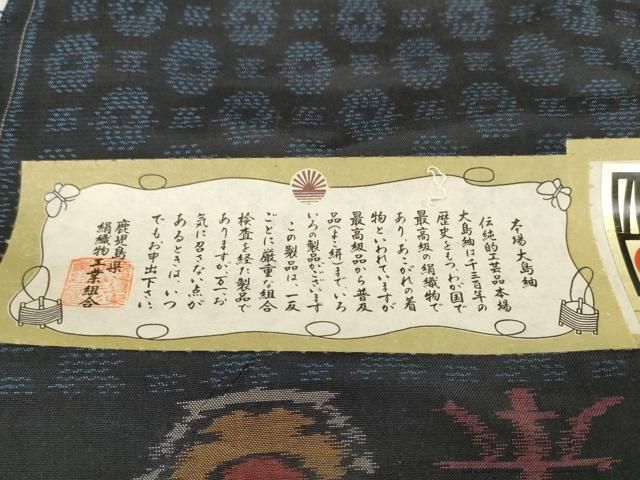 本場大島紬
伝統的工芸品本場
大島紬は千三百年の
歴史をもつ、わが国で
最高級の絹織物で
あり、あこがれの着
物といわれていますが
最高級品から普及
品(よこ絣)までいろ
いろの製品がございます
この製品は、一反
ごとに厳重な組合
検査を経た製品で
ありますが、万一お
気に召さない点が
あるときは、いつ
でもお申出下さい。
鹿児島県
絹織物工業組合